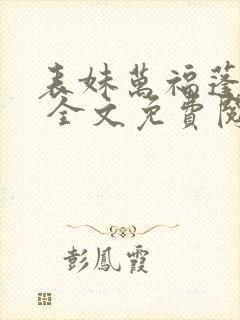 表妹萬福蓬
全文免費閱
彭鳳霞